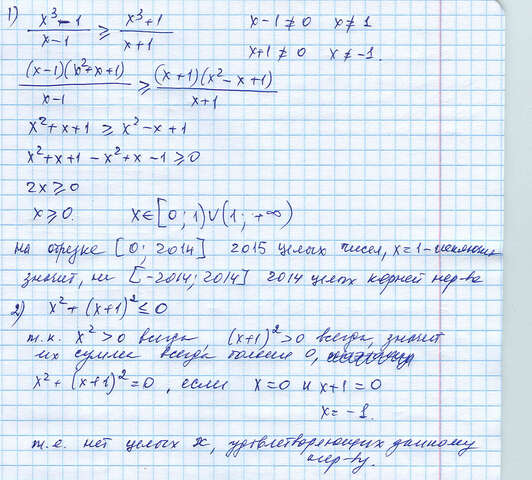 1) (x³ - 1)/(x - 1) ≥ (x³ + 1)/(x + 1)   x - 1 ≠ 0   x ≠ 1
x + 1 ≠ 0   x ≠ -1.
((x - 1)(x² + x + 1))/(x - 1) ≥ ((x + 1)(x² - x + 1))/(x + 1)
x² + x + 1 ≥ x² - x + 1
x² + x + 1 - x² + x - 1 ≥ 0
2x ≥ 0
x ≥ 0.   x ∈ [0; 1) ∪ (1; +∞)
на отрезке [0; 2014]   2015 целых чисел, x = 1 -
значит, на [-2014; 2014]   2014 целых корней нер-ва
2) x² + (x + 1)² ≤ 0
т.к. x² > 0 всегда, (x+1)² > 0 всегда, значит
их сумма всегда больше 0,
x² + (x+1)² = 0, если   x = 0 и x + 1 = 0
x = -1.
т.е. нет целых x, удовлетворяющих данному
нер-ву.